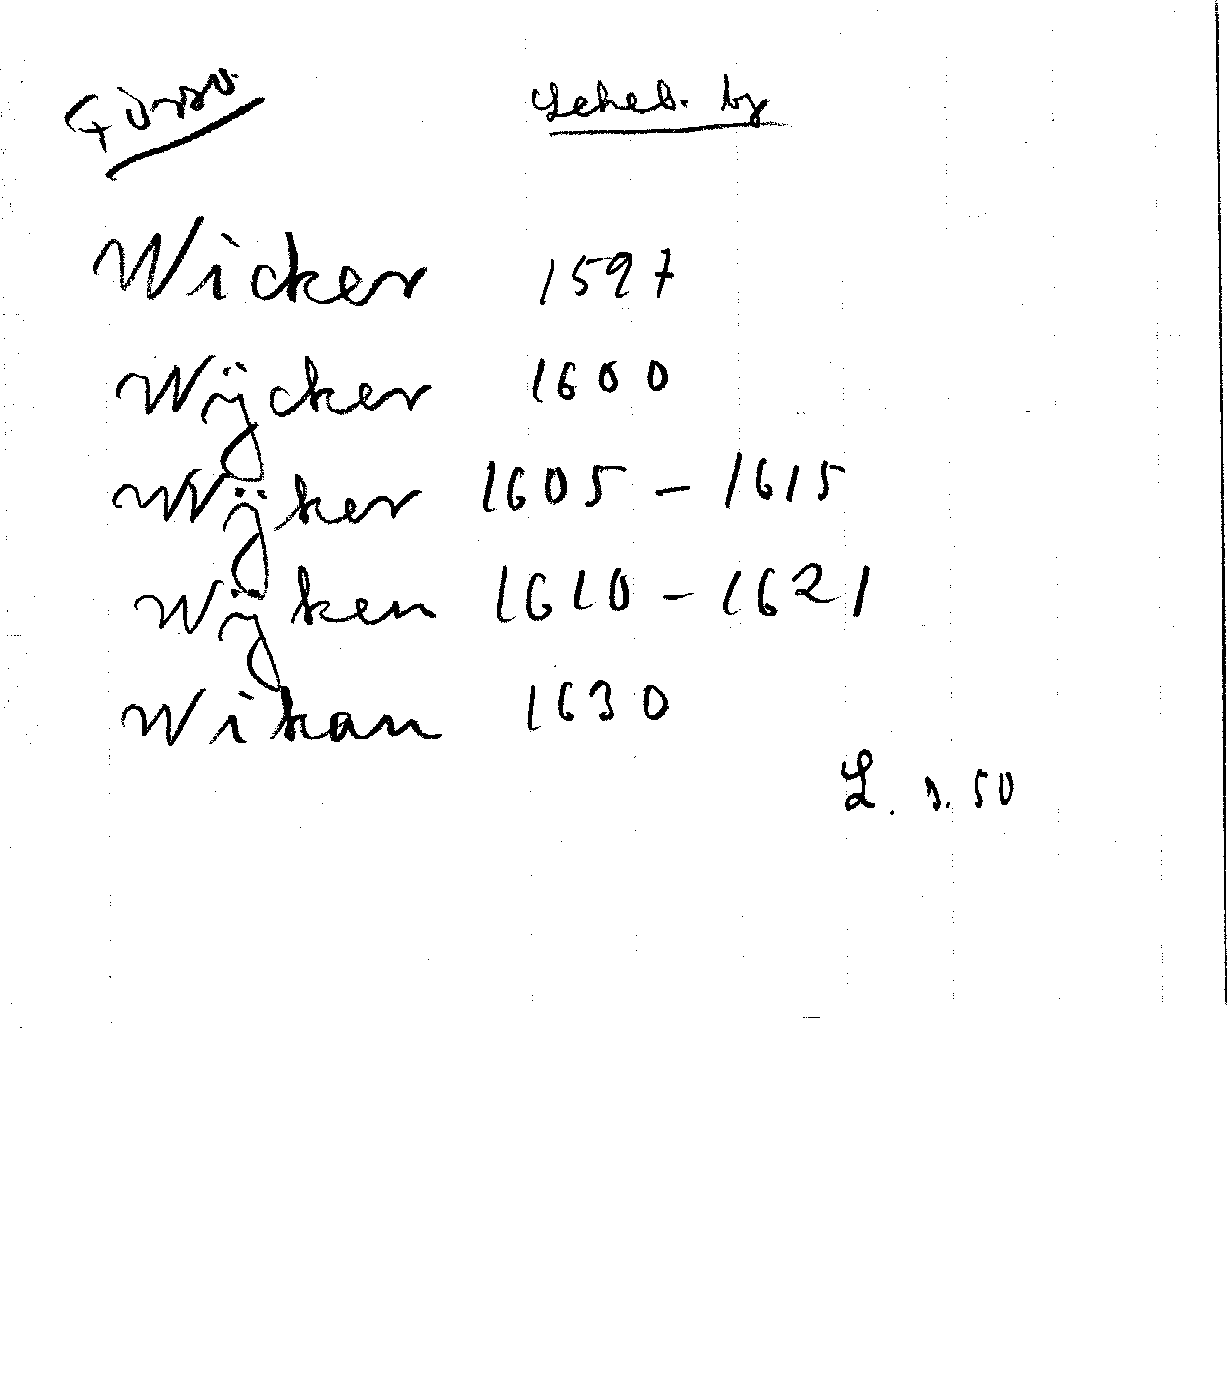 Leheb. by
Wicker 1597
Wÿcker 1600
Wÿker 1605 - 1615
Wÿken 1610 - 1621
Wikan 1630
L. s. 50